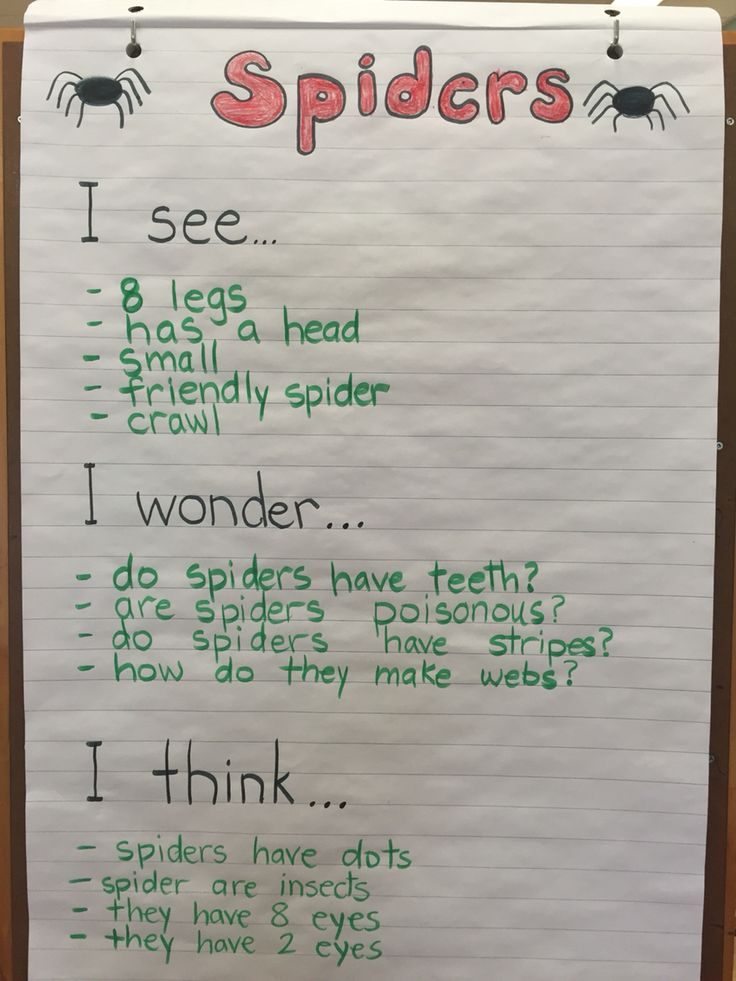 Spiders
I see...
- 8 legs
- has a head
- small
- friendly spider
- crawl
I wonder...
- do spiders have teeth?
- are spiders poisonous?
- do spiders have stripes?
- how do they make webs?
I think...
- spiders have dots
- spider are insects
- they have 8 eyes
- they have 2 eyes